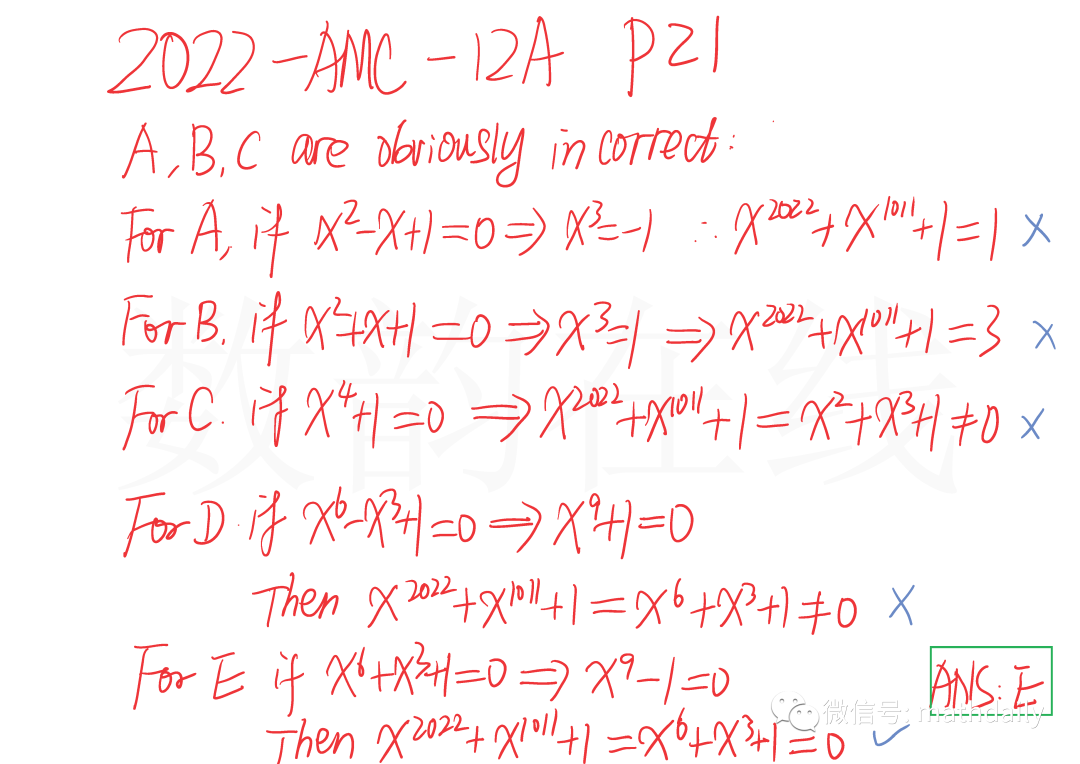 2022-AMC-12A P21
A, B, C are obviously incorrect:
For A, if x²-x+1=0 ⇒ x³=-1 ∴ x²⁰²²+x¹⁰¹¹+1=1 ×
For B, if x²+x+1=0 ⇒ x³=1 ⇒ x²⁰²²+x¹⁰¹¹+1=3 ×
For C. if x⁴+1=0 ⇒ x²⁰²²+x¹⁰¹¹+1=x²+x³+1≠0 ×
For D. if x⁶-x³+1=0 ⇒ x⁹+1=0
Then x²⁰²²+x¹⁰¹¹+1=x⁶+x³+1≠0 ×
For E if x⁶+x³+1=0 ⇒ x⁹-1=0
Then x²⁰²²+x¹⁰¹¹+1=x⁶+x³+1=0 ✓
ANS: E
微信号: mathdaily
数韵在线